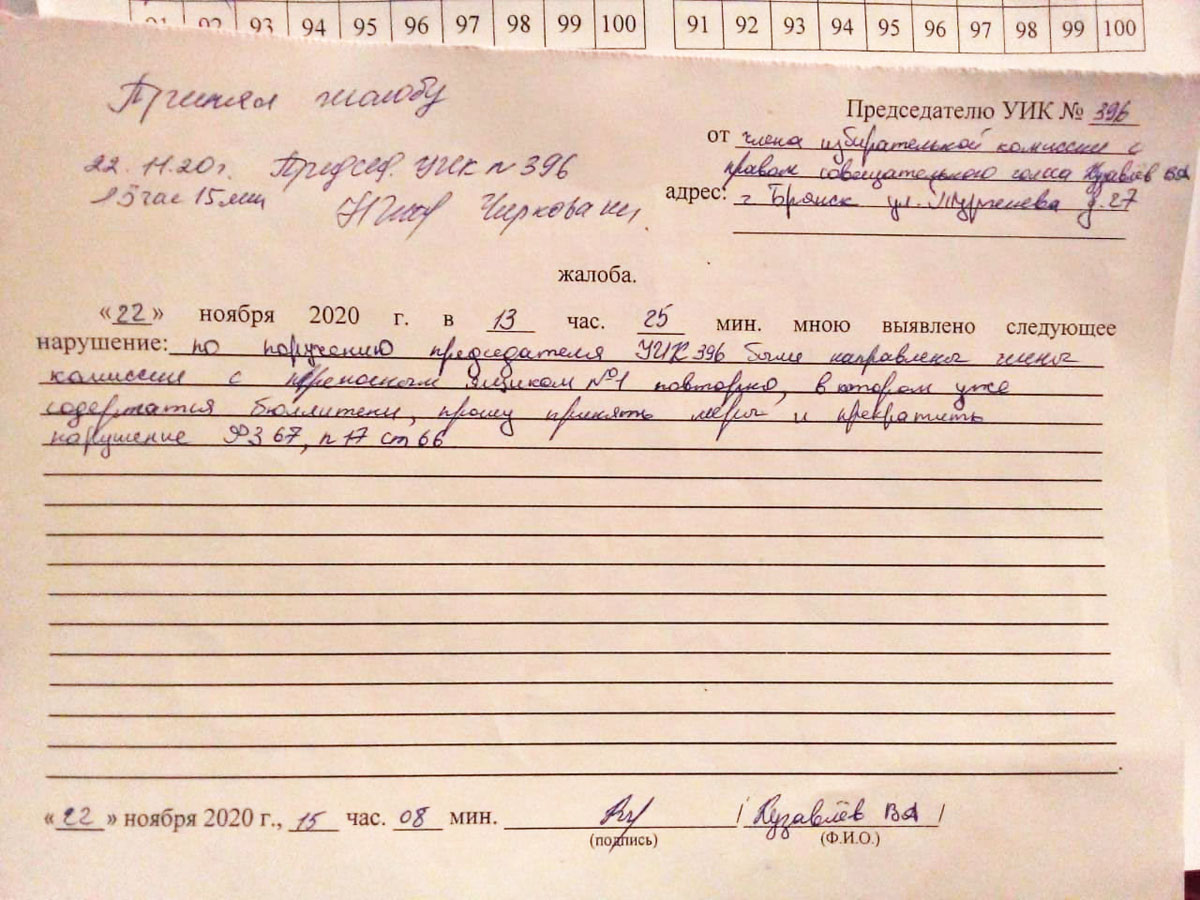 91 92 93 94 95 96 97 98 99 100 91 92 93 94 95 96 97 98 99 100
Принял жалобу
22.11.20г. Председ. УИК n 396
15 час 15 мин Чиркова
Председателю УИК № 396
от члена избирательной комиссии с
правом совещательного голоса Кузавлёв ВА
адрес: г Брянск ул. Тургенева д. 27
жалоба.
«22» ноября 2020 г. в 13 час. 25 мин. мною выявлено следующее
нарушение: по поручению председателя УИК 396 были направлены члены
комиссии с переносным ящиком №1 повторно, в котором уже
содержатся бюллитени, прошу принять меры и прекратить
нарушение ФЗ 67, п 17 ст 66
«22» ноября 2020 г., 15 час. 08 мин. / Кузавлёв ВА /
(подпись) (Ф.И.О.)